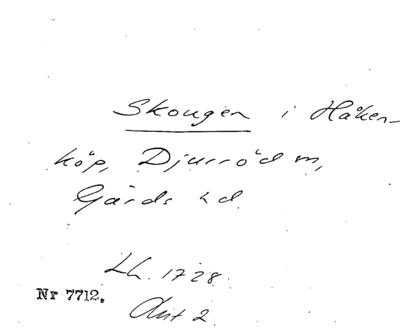 Skougen i Håken-
köp, Djurröd m,
Gärds hd.
Lh. 1728.
Nr 7712.
Ant 2